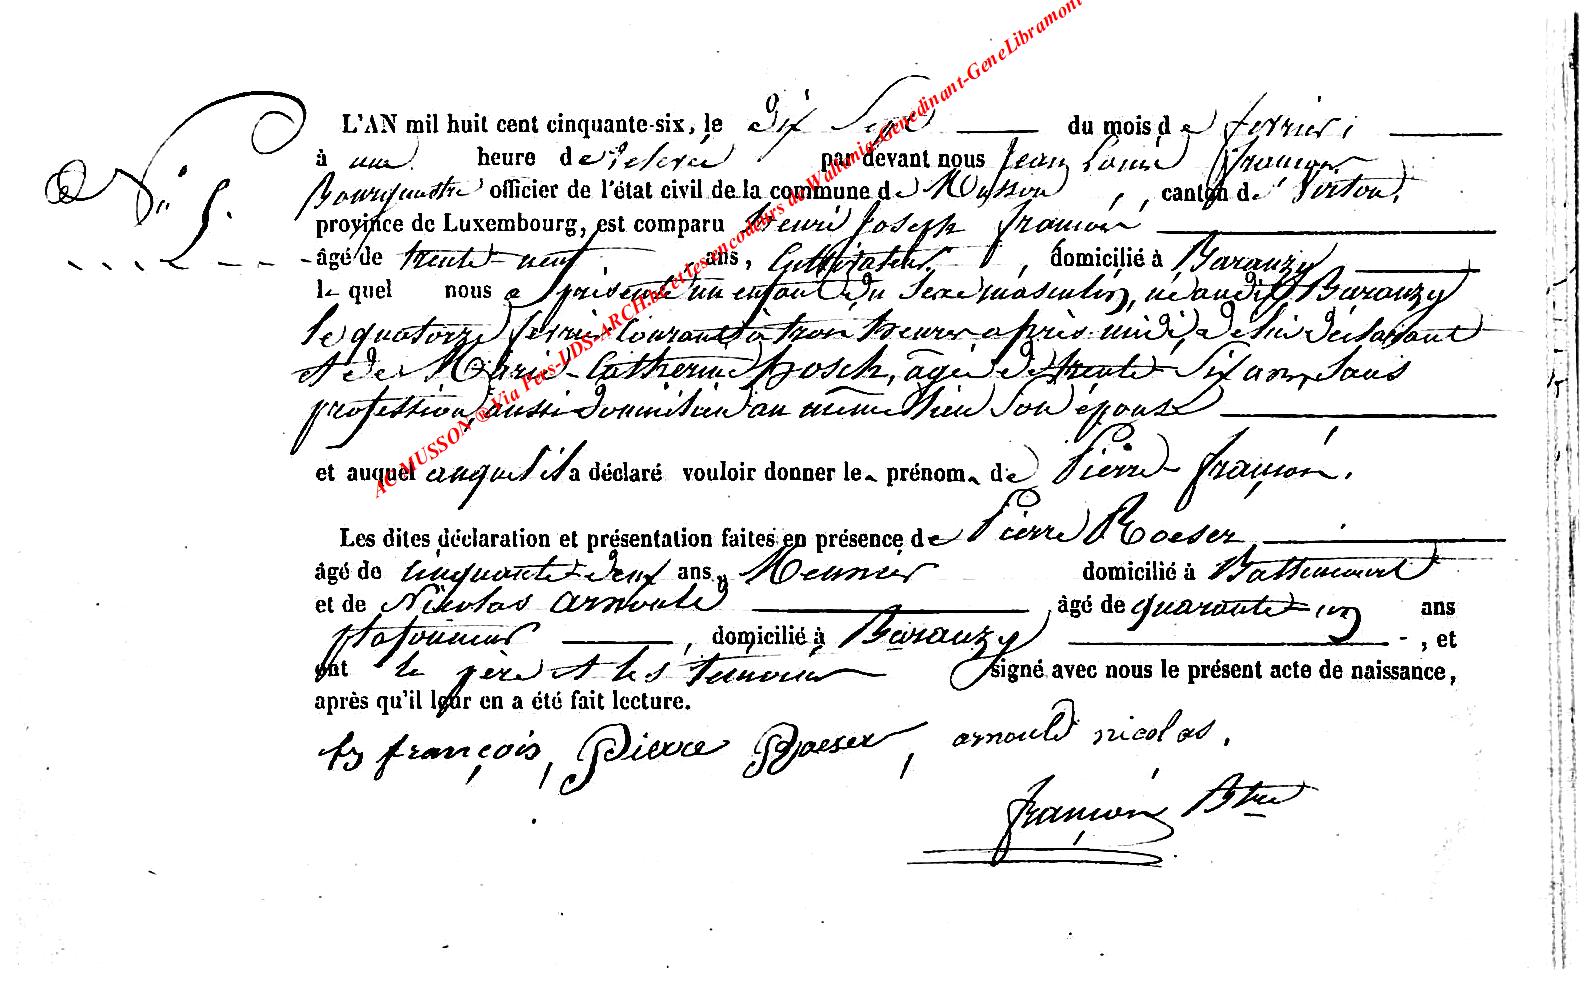 N° 5.
L'AN mil huit cent cinquante-six, le dix Sept du mois de février,
à une heure de relevée par devant nous Jean Louis françois
Bourgmestre officier de l'état civil de la commune de Musson, canton de Virton,
province de Luxembourg, est comparu henri Joseph françois
âgé de trente-neuf ans, Cultivateur, domicilié à Baranzy
le quel nous a présenté un enfant du Sexe masculin, né audit Baranzy
le quatorze février Courant à trois heures après midi, de lui déclarant
et de Marie-Catherine hosch, agée de trente Six ans, Sans
profession, aussi domiciliée au même lieu Son épouse
et auquel auquel il a déclaré vouloir donner le prénom de Pierre-françois.
Les dites déclaration et présentation faites en présence de Pierre Roeser
âgé de cinquante-deux ans, Meunier domicilié à Battincourt
et de Nicolas arnould âgé de quarante-un ans
plafonneur, domicilié à Baranzy, et
ont le père et les témoins signé avec nous le présent acte de naissance,
après qu'il leur en a été fait lecture.
hj françois, Pierre Roeser, arnould nicolas.
françois Btre
AC MUSSON ® Via Pers-LDS-ARCH.be et les encodeurs de Wallonia-Genedinant-GeneLibramont